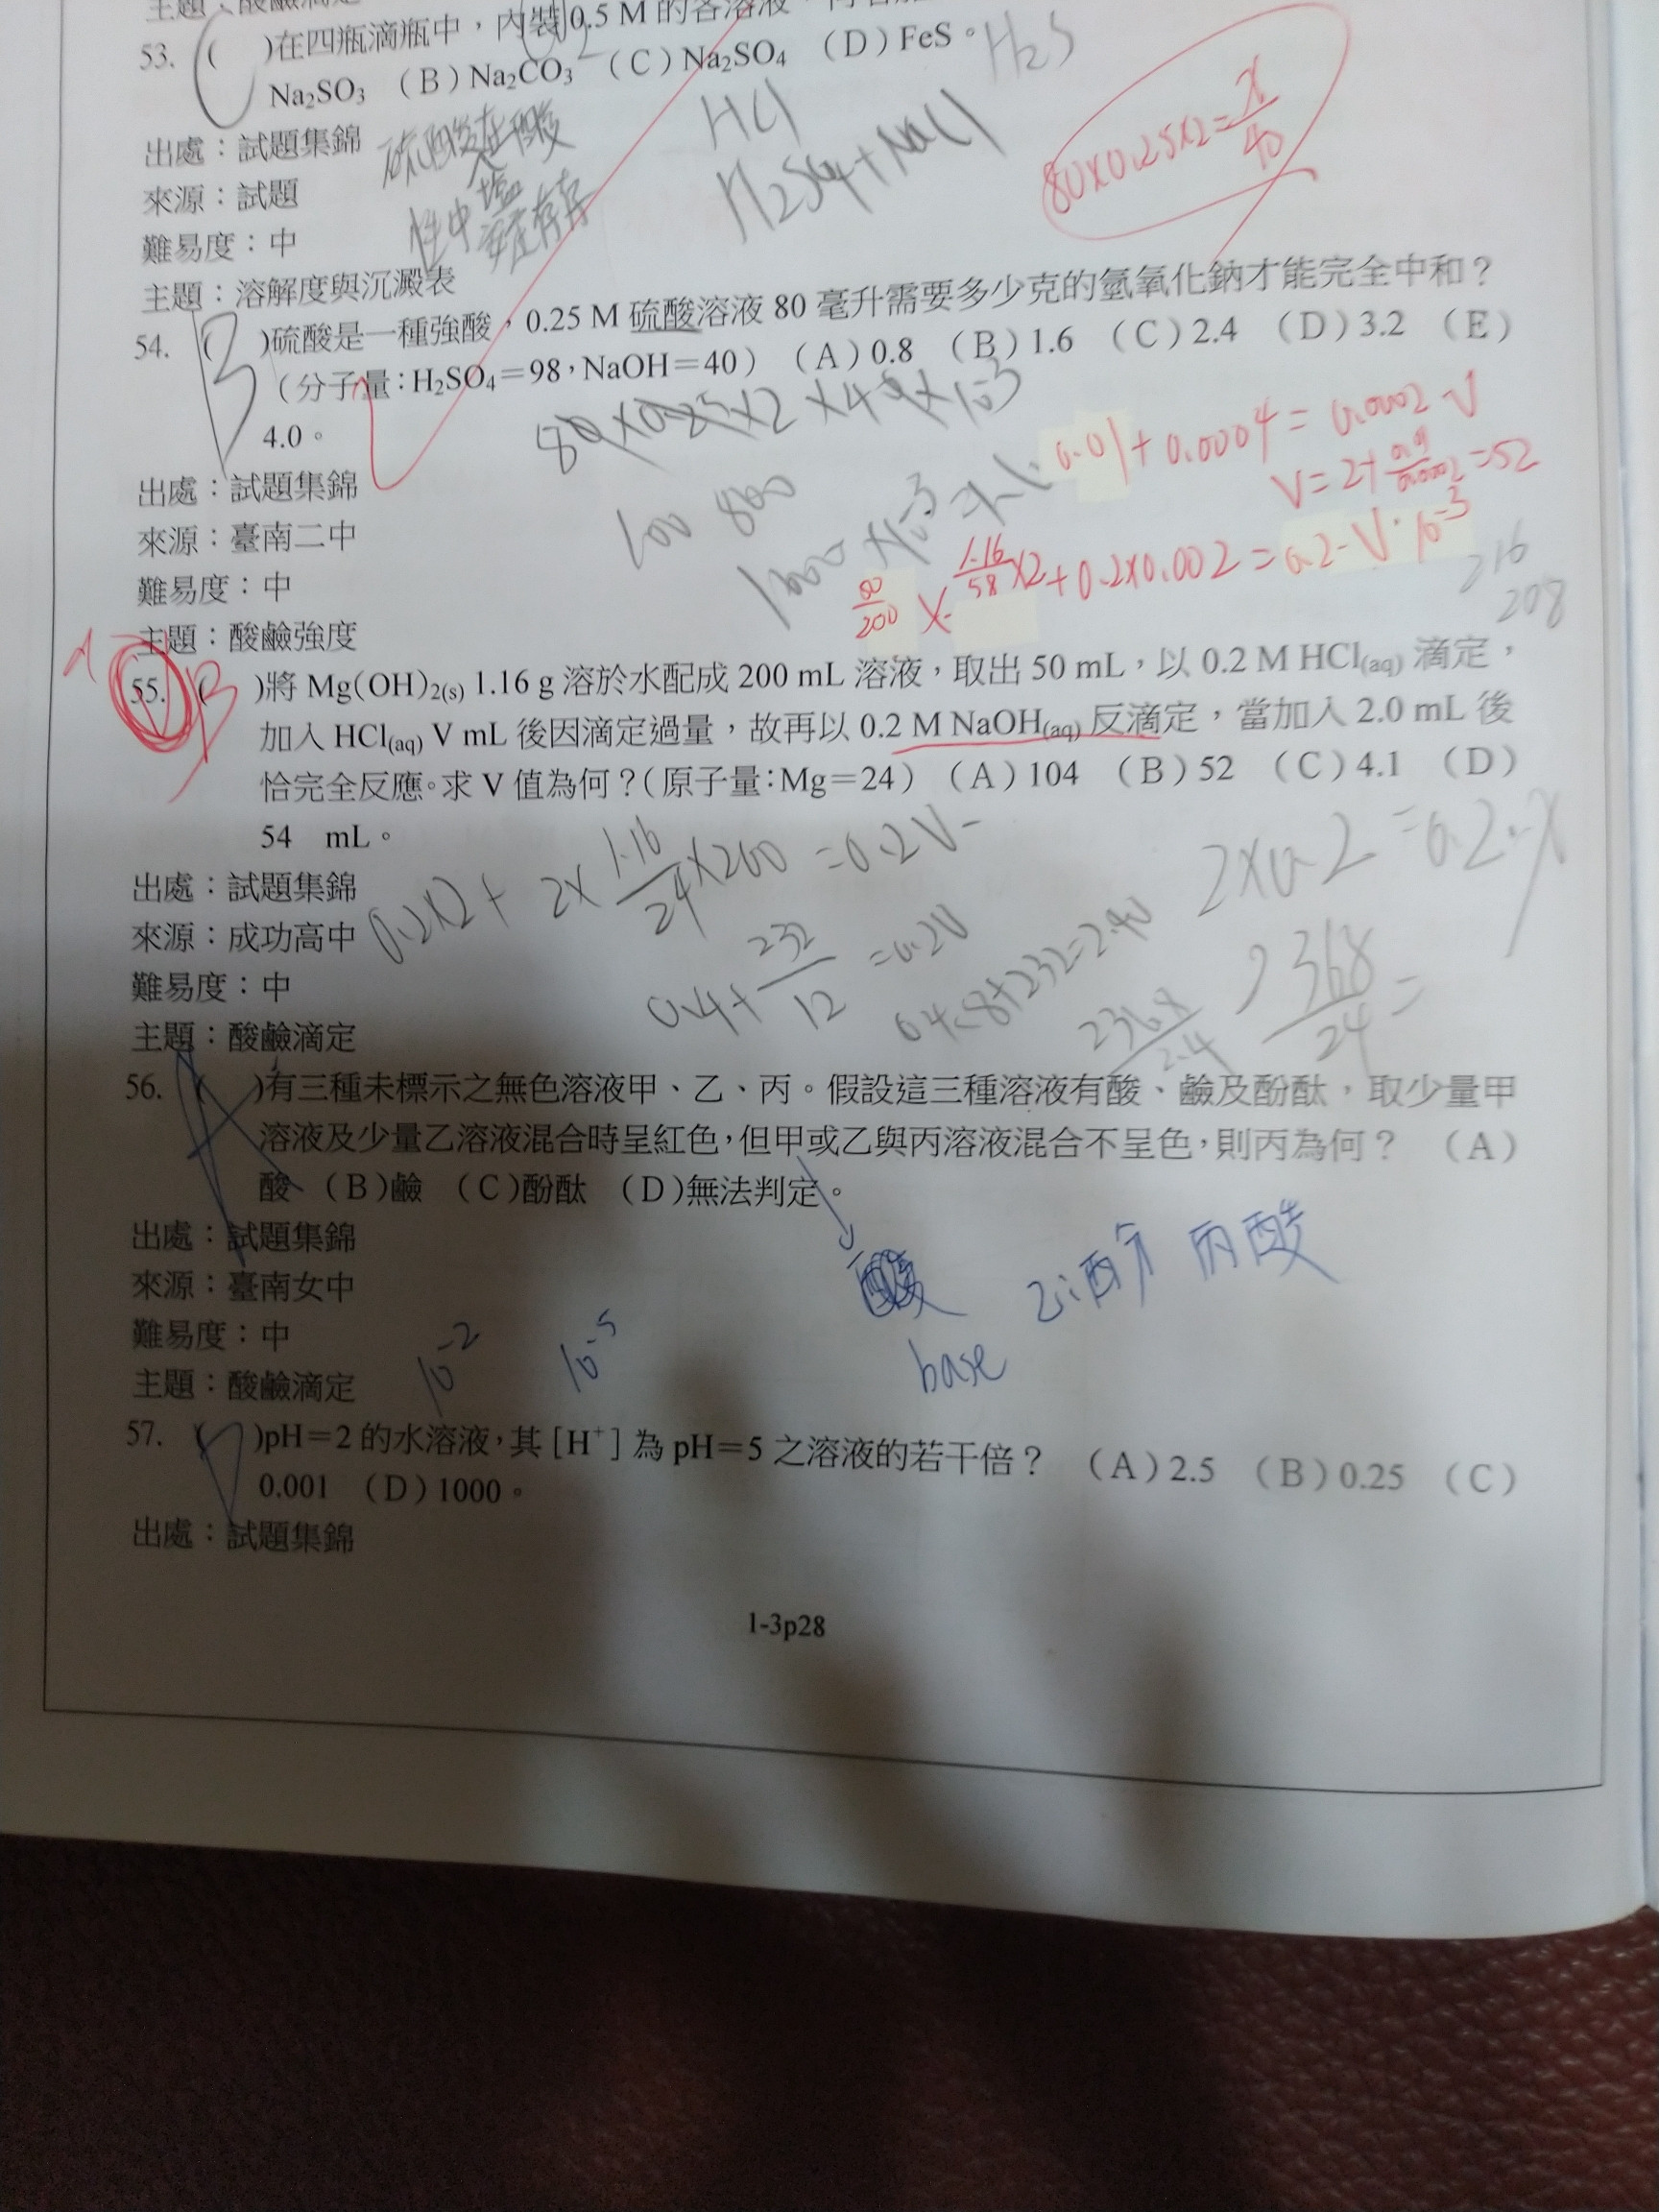 53. ( )在四瓶滴瓶中，內裝 0.5 M 的各溶液，
Na₂SO₃ （B）Na₂CO₃ （C）Na₂SO₄ （D）FeS。
H₂S
出處：試題集錦
HCl
來源：試題
H₂SO₄+NaCl
80×0.25×2=x/40
難易度：中
主題：溶解度與沉澱表
54. ( B )硫酸是一種強酸，0.25 M 硫酸溶液 80 毫升需要多少克的氫氧化鈉才能完全中和？
（分子量：H₂SO₄＝98，NaOH＝40）（A）0.8 （B）1.6 （C）2.4 （D）3.2 （E）
4.0。
80×0.25×2×40×10⁻³
出處：試題集錦
0.01+0.0004=0.0002 V
來源：臺南二中
100 800
難易度：中
1.16/58×2+0.2×0.002=0.2·V·10⁻³
216
208
主題：酸鹼強度
55. ( B )將 Mg(OH)₂₍ₛ₎ 1.16 g 溶於水配成 200 mL 溶液，取出 50 mL，以 0.2 M HCl(aq) 滴定，
加入 HCl(aq) V mL 後因滴定過量，故再以 0.2 M NaOH(aq) 反滴定，當加入 2.0 mL 後
恰完全反應。求 V 值為何？（原子量：Mg＝24）（A）104 （B）52 （C）4.1 （D）
54 mL。
出處：試題集錦
0.2×2+2×1.16/24×200=0.2V
2×0.2=0.2·x
來源：成功高中
0.4+232/12=0.2V
難易度：中
2368/24=
主題：酸鹼滴定
56. ( A )有三種未標示之無色溶液甲、乙、丙。假設這三種溶液有酸、鹼及酚酞，取少量甲
溶液及少量乙溶液混合時呈紅色，但甲或乙與丙溶液混合不呈色，則丙為何？ （A）
酸 （B）鹼 （C）酚酞 （D）無法判定。
出處：試題集錦
丙酸
來源：臺南女中
難易度：中
10⁻² 10⁻⁵ base
主題：酸鹼滴定
57. ( D )pH＝2 的水溶液，其［H⁺］為 pH＝5 之溶液的若干倍？ （A）2.5 （B）0.25 （C）
0.001 （D）1000。
出處：試題集錦
1-3p28